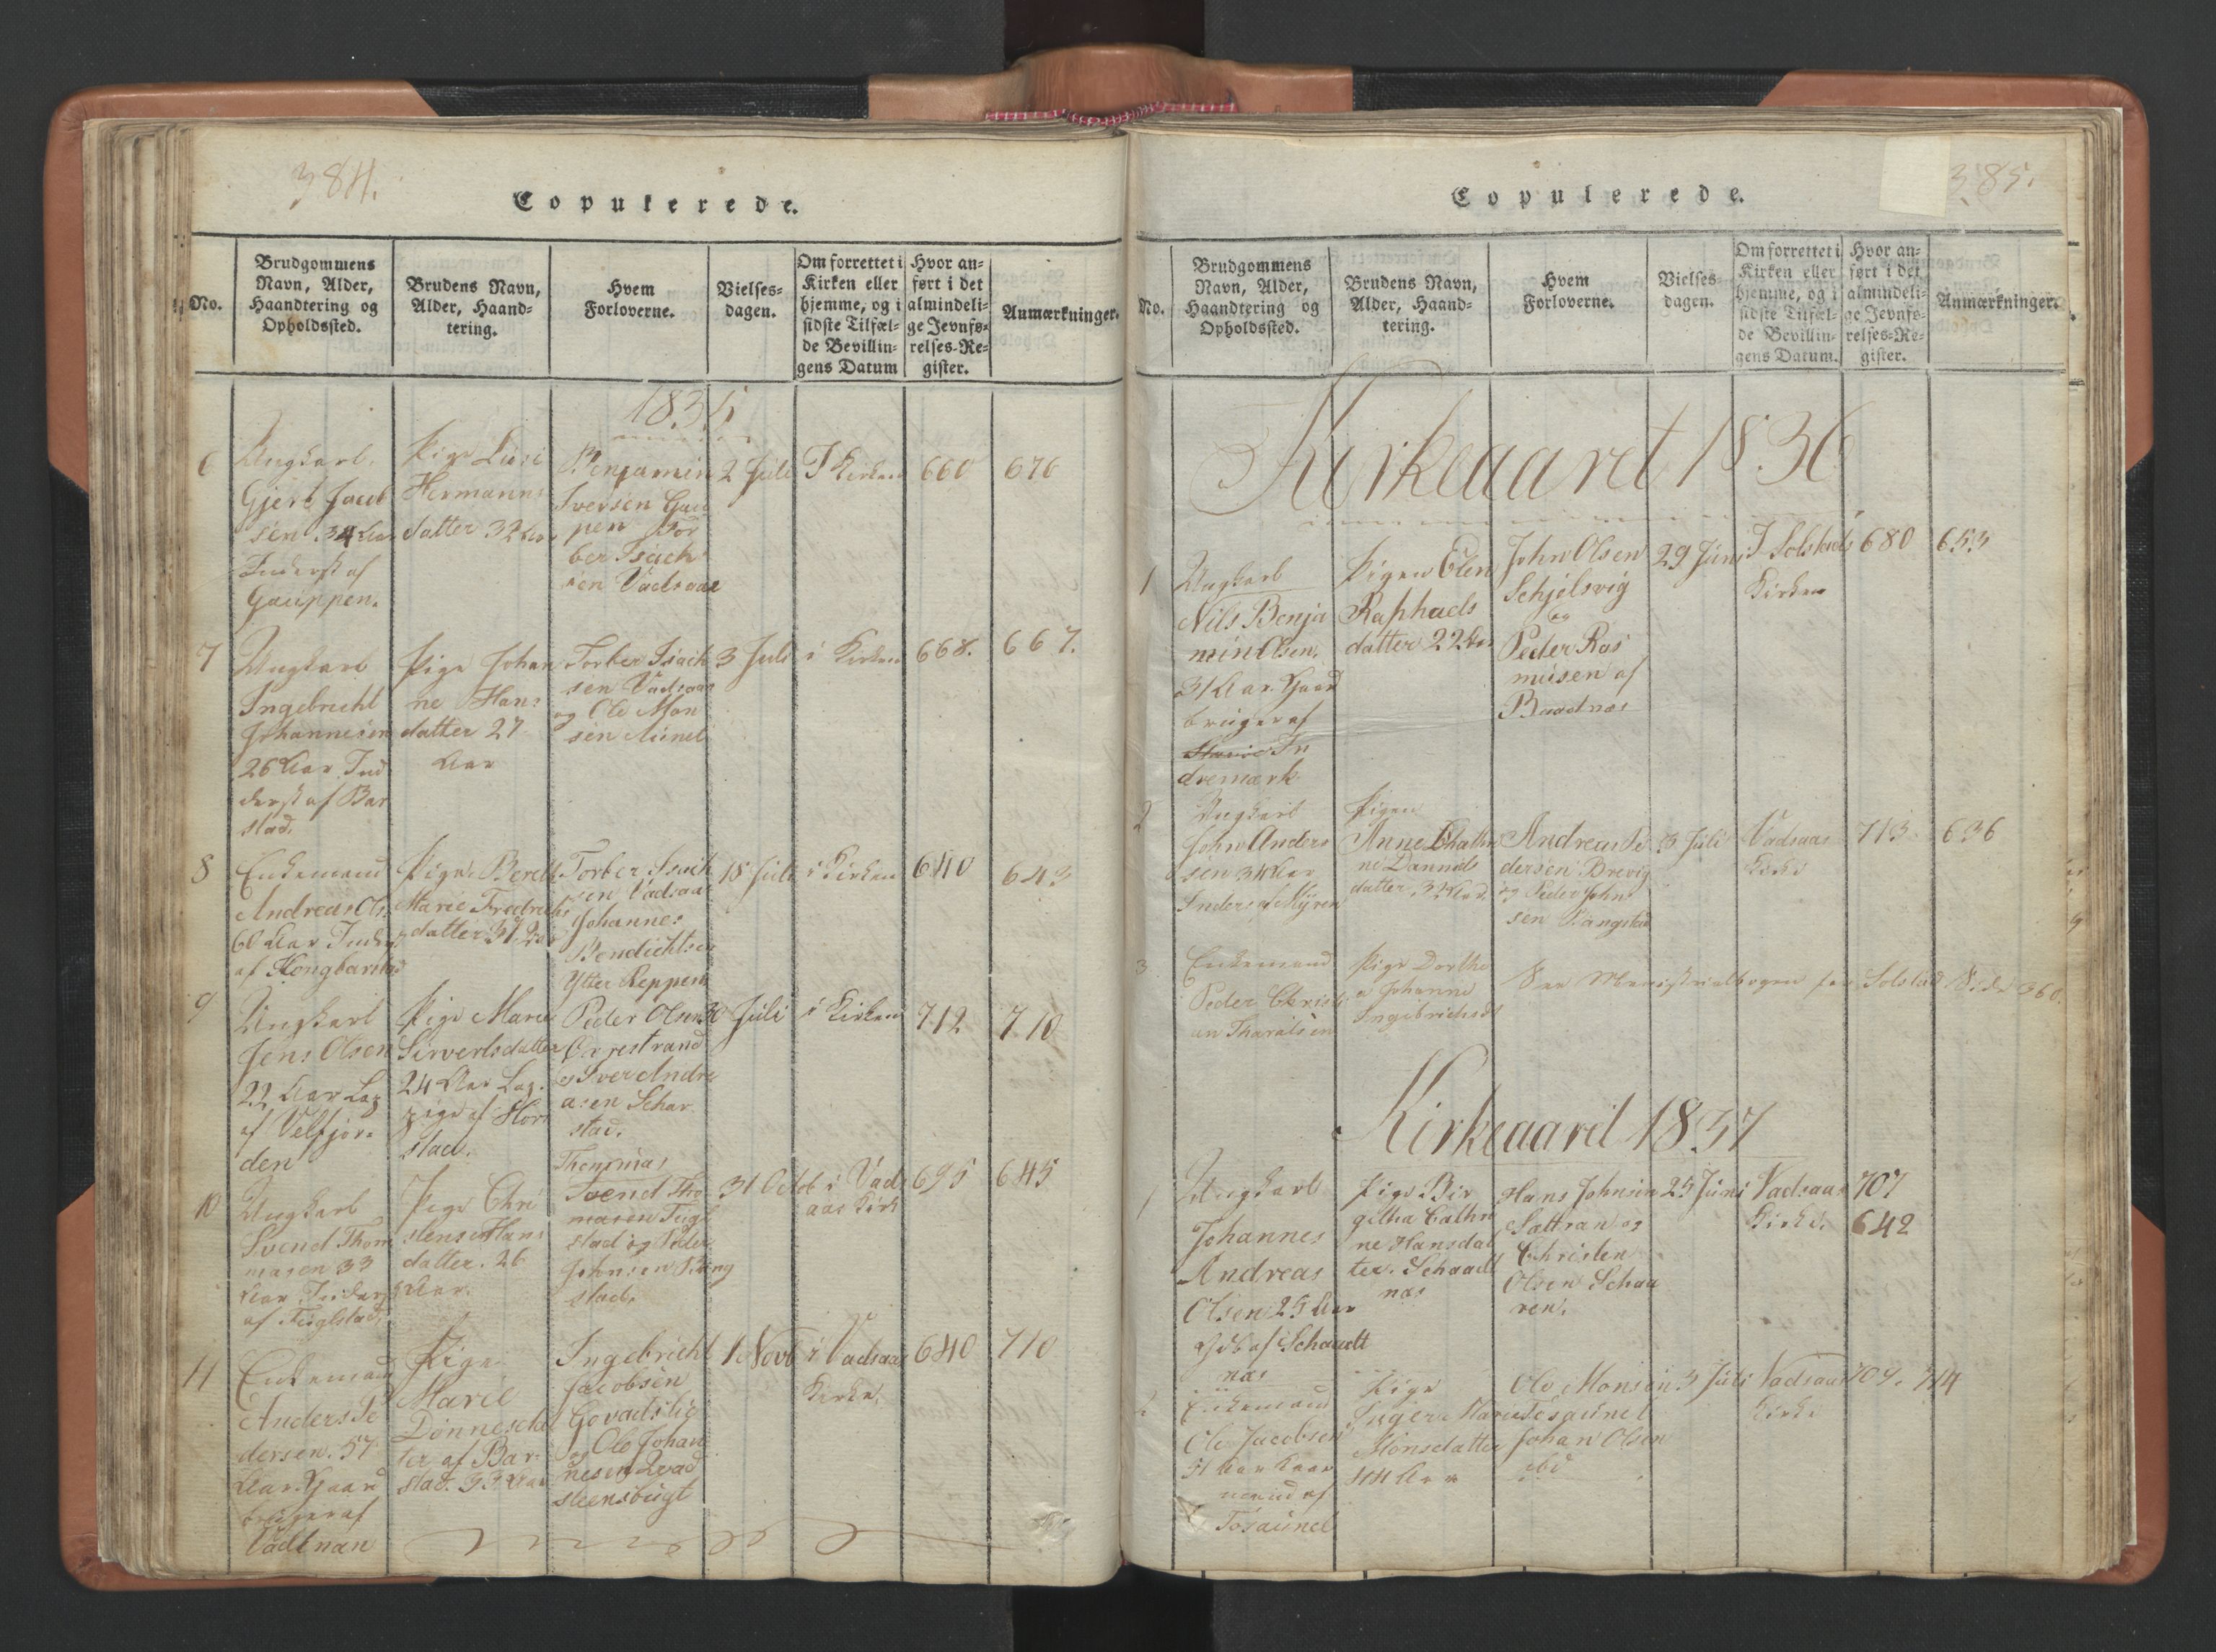 384.
Copulerede.
No.
Brudgommens
Navn, Alder,
Haandtering og
Opholdssted.
Brudens Navn,
Alder, Haand=
tering.
Hvem
Forloverne.
Vielses=
dagen.
Om forrettet i
Kirken eller
hjemme, og i
sidste Tilfæl=
de Bevillin=
gens Datum
Hvor an=
ført i det
almindeli=
ge Jevnfø=
relses=Re=
gister.
Anmærkninger.
1835
6
Ungkarl
Gjert Jacob
sen 34 Aar
Inderst af
Gauppen.
Pige Lusi
Hermanns
datter 32 Aar
Benjamin
Iversen Gau
pen Tor
ber Isach
sen Vadsaas
2 Juli
I Kirken
660
676
7
Ungkarl
Ingebricht
Johannesen
26 Aar Ind
derst af Bar
stad.
Pige Johan
ne Hans
datter 27
Aar
Torber Isach
sen Vadsaas
og Ole Mon
sen
3 Juli
i Kirken
668.
667.
8
Enkemand
Andreas Ols
60 Aar Inderst
af Hongbarstad
Pige Berett
Marie Fredrichs
datter 37 Aar
Torber Isach
sen Vadsaas
Johannes
Bendichtsen
Ytter Reppen
18 Juli
i Kirken
640
643
9
Ungkarl
Jens Olsen
22 Aar Log
af Velfjor=
den
Pige Maren
Sivertsdatter
24 Aar Log.
pige af Horn
stad.
Peder Olsen
og Iver Andre
asen Schar
stad.
30 Juli
i Kirken
712
710
10
Ungkarl
Svend Thom
masen 33
Aar Inderst
af Fuglstad.
Pige Chri
stense Hans
datter. 26
Aar.
Thommas
Svend Tho
masen Fugl
stad og Peder
Johnsen Rang
stad.
31 Octob
i Vads
aas Kirk
695
645
11
Enkemand
Anders Pe
dersen. 57
Aar. Gaard
bruger af
Pige
Marie
Dønnesdat
ter af Bar
stad. 33 Aar
Ingebricht
Jacobsen
og Ole Johan
nesen
1 Novb
i Vadsaas
Kirke.
640
710
385.
Copulerede.
No.
Brudgommens
Navn, Alder,
Haandtering og
Opholdssted.
Brudens Navn,
Alder, Haand=
tering.
Hvem
Forloverne.
Vielses
dagen.
Om forrettet i
Kirken eller
hjemme, og i
sidste Tilfæl=
de Bevillin=
gens Datum.
Hvor an=
ført i det
almindeli=
ge Jevnfø=
relses=Re=
gister.
Anmærkninger.
Kirkeaaret 1836
1
Ungkarl
Nils Benja
min Olsen.
31 Aar. Gaard
bruger af
In
dremark
Pigen Elen
Raphaels
datter 22 Aar
John Olsen
Schjelsvig
og
Peder Ras
musen af
Baadnæs
29 Juni
I Solstads
Kirken
680
653
2
Ungkarl
John Anders
sen 34 Aar
Inderst Myren
Pigen
Anne Chathri
ne Danniels
datter. 32 Aar
Andreas Pe
dersen Brevig
og Peder John
sen Rangstad
3 Juli
Vadsaas
Kirke
713
636
3
Enkemand
Peder Christi
an Tharalsen
Pige Dorthe
a Johanne
Ingebrichsdt
See Ministrialbogen for Solstad Side 360.
Kirkeaaret 1837
1
Ungkarl
Johannes
Andreas
Olsen 25 Aar
Gdb af Schaadt
næs
Pige Bir
githa Cathri
ne Hansdat
ter. Schaadt
næs
Hans Johnsen
Sattran og
Christen
Olsen Schau
ren.
25 Juni
Vadsaas
Kirke.
707
642
2
Enkemand
Ole Jacobsen
51 Aar Gaar
mand af
Tosaunet
Pige
Inger Marie
Monsdatter
44 Aar
Ole Monsen
Tosaunet
Johan Olsen
ibd
3 Juli
Vadsaas
Kirke
709.
714